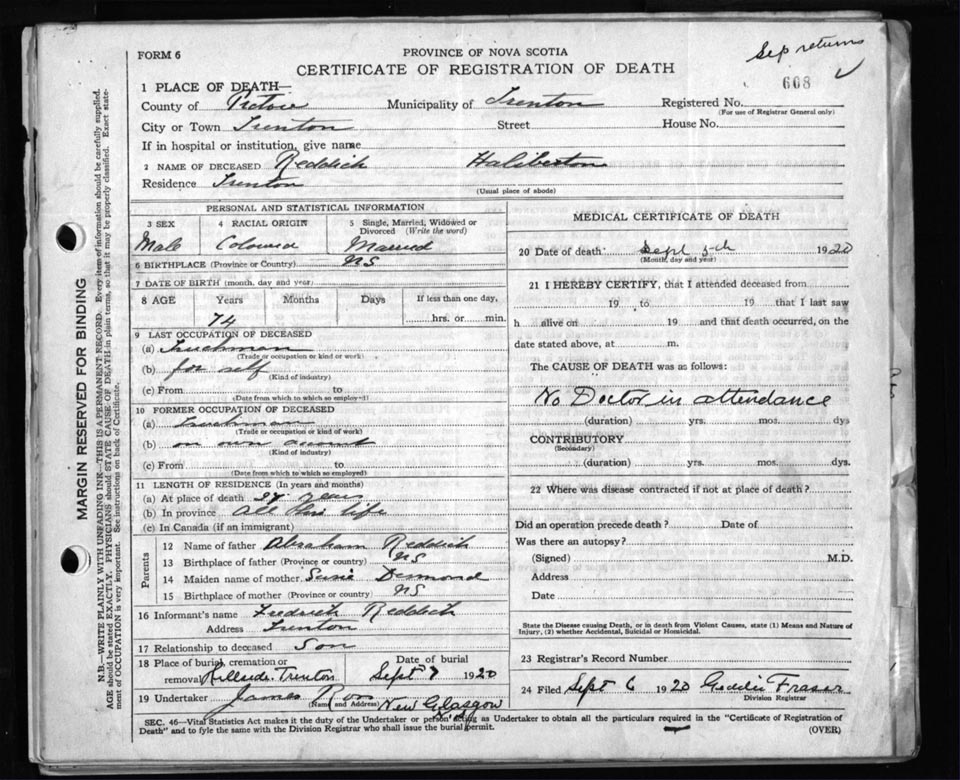 Sep returns
FORM 6
PROVINCE OF NOVA SCOTIA
CERTIFICATE OF REGISTRATION OF DEATH
608
1 PLACE OF DEATH—
County of Pictou Municipality of Trenton Registered No.
(For use of Registrar General only)
City or Town Trenton Street House No.
If in hospital or institution, give name
2 NAME OF DECEASED Reddick Haliberton
Residence Trenton
(Usual place of abode)
PERSONAL AND STATISTICAL INFORMATION
3 SEX 4 RACIAL ORIGIN 5 Single, Married, Widowed or Divorced (Write the word)
Male Coloured Married
6 BIRTHPLACE (Province or Country) NS
7 DATE OF BIRTH (month, day and year)
8 AGE Years Months Days If less than one day,
74 hrs. or min.
9 LAST OCCUPATION OF DECEASED
(a) Truckman
(Trade or occupation or kind or work)
(b) for self
(Kind of industry)
(c) From to
(Date from which to which so employed)
10 FORMER OCCUPATION OF DECEASED
(a) Truckman
(Trade or occupation or kind of work)
(b) on own account
(Kind of industry)
(c) From to
(Date from which to which so employed)
11 LENGTH OF RESIDENCE (In years and months)
(a) At place of death years
(b) In province All his life
(c) In Canada (if an immigrant)
Parents
12 Name of father Abraham Reddick
13 Birthplace of father (Province or country) NS
14 Maiden name of mother Susie Desmond
15 Birthplace of mother (Province or country) NS
16 Informant's name Fredrick Reddick
Address Trenton
17 Relationship to deceased Son
18 Place of burial, cremation or removal Hillside Trenton
Date of burial
Sept 7 1920
19 Undertaker James Ross New Glasgow
(Name and Address)
MEDICAL CERTIFICATE OF DEATH
20 Date of death Sept 5th 1920
(Month, day and year)
21 I HEREBY CERTIFY, that I attended deceased from
19 to 19 that I last saw
h alive on 19 and that death occurred, on the
date stated above, at m.
The CAUSE OF DEATH was as follows:
No Doctor in attendance
(duration) yrs. mos. dys
CONTRIBUTORY
(Secondary)
(duration) yrs. mos. dys.
22 Where was disease contracted if not at place of death?
Did an operation precede death? Date of
Was there an autopsy?
(Signed) M.D.
Address
Date
State the Disease causing Death, or in death from Violent Causes, state (1) Means and Nature of
Injury, (2) whether Accidental, Suicidal or Homicidal.
23 Registrar's Record Number
24 Filed Sept 6 1920 Fraser
Division Registrar
SEC. 46—Vital Statistics Act makes it the duty of the Undertaker or person acting as Undertaker to obtain all the particulars required in the "Certificate of Registration of
Death" and to fyle the same with the Division Registrar who shall issue the burial permit.
(OVER)
MARGIN RESERVED FOR BINDING
N.B.—WRITE PLAINLY WITH UNFADING INK—THIS IS A PERMANENT RECORD. Every item of information should be carefully supplied.
AGE should be stated EXACTLY. PHYSICIANS should STATE CAUSE OF DEATH in plain terms, so that it may be properly classified. Exact statement of OCCUPATION is very important. See instructions on back of Certificate.